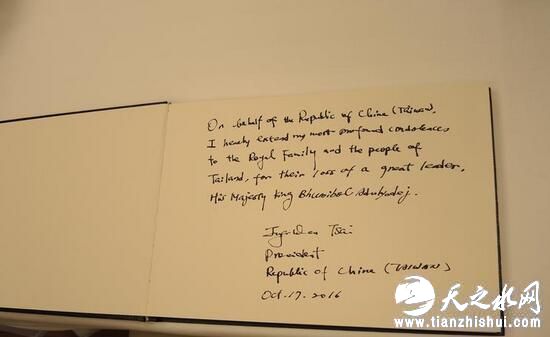 On behalf of the Republic of China (Taiwan),
I hereby extend my most profound condolences
to the Royal Family and the people of
Tailand, for their loss of a great leader,
His Majesty King Bhumibol Adulyadej.
Ing-wen Tsai
President
Republic of China (TAIWAN)
Oct. 17. 2016
天之水网
www.tianzhishui.com